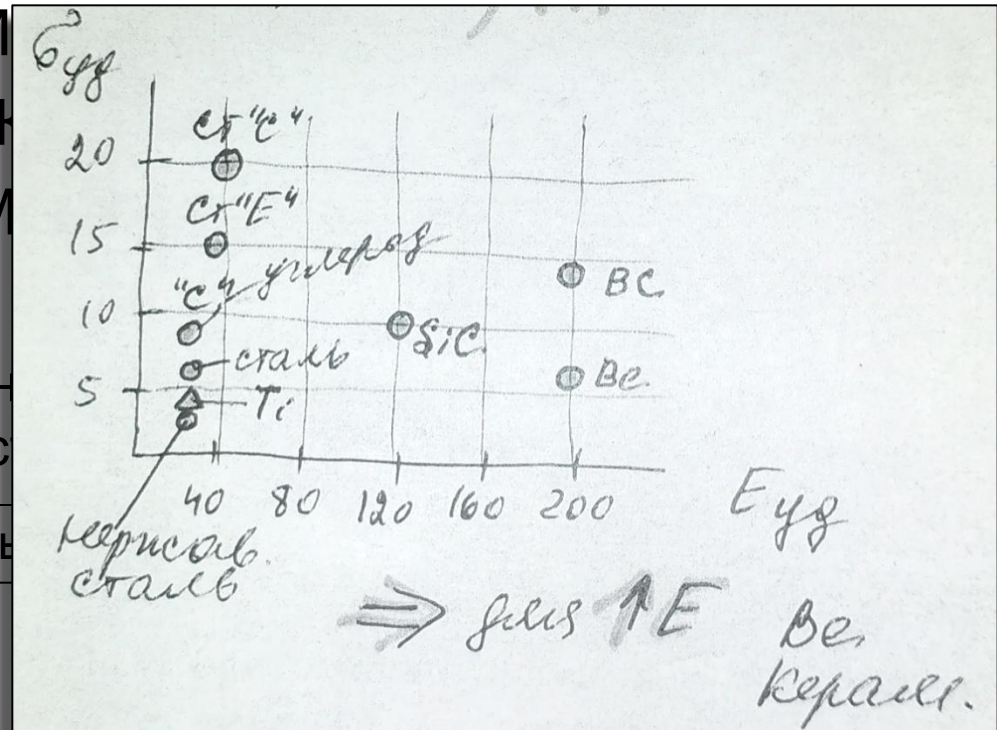 σуд
20
15
10
5
Ст "С"
Ст "Е"
"С" углерод
сталь
Ti
SiC
ВС
Ве
40 80 120 160 200
Eуд
нержав.
сталь
⇒ для ↑ E
Ве.
Керам.